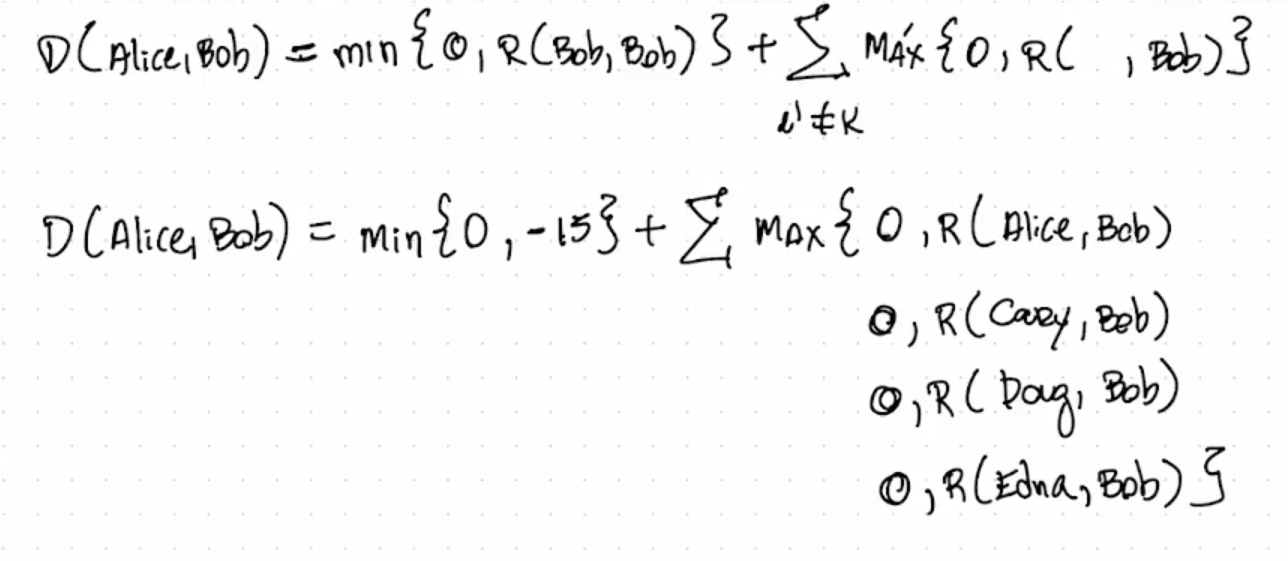 D(Alice, Bob) = min { 0, R(Bob, Bob) } + ∑ MÁX { 0, R(  , Bob) }
i' ≠ K
D(Alice, Bob) = min { 0, -15 } + ∑ MAX { 0, R(Alice, Bob)
0, R(Cary, Bob)
0, R(Doug, Bob)
0, R(Edna, Bob) }